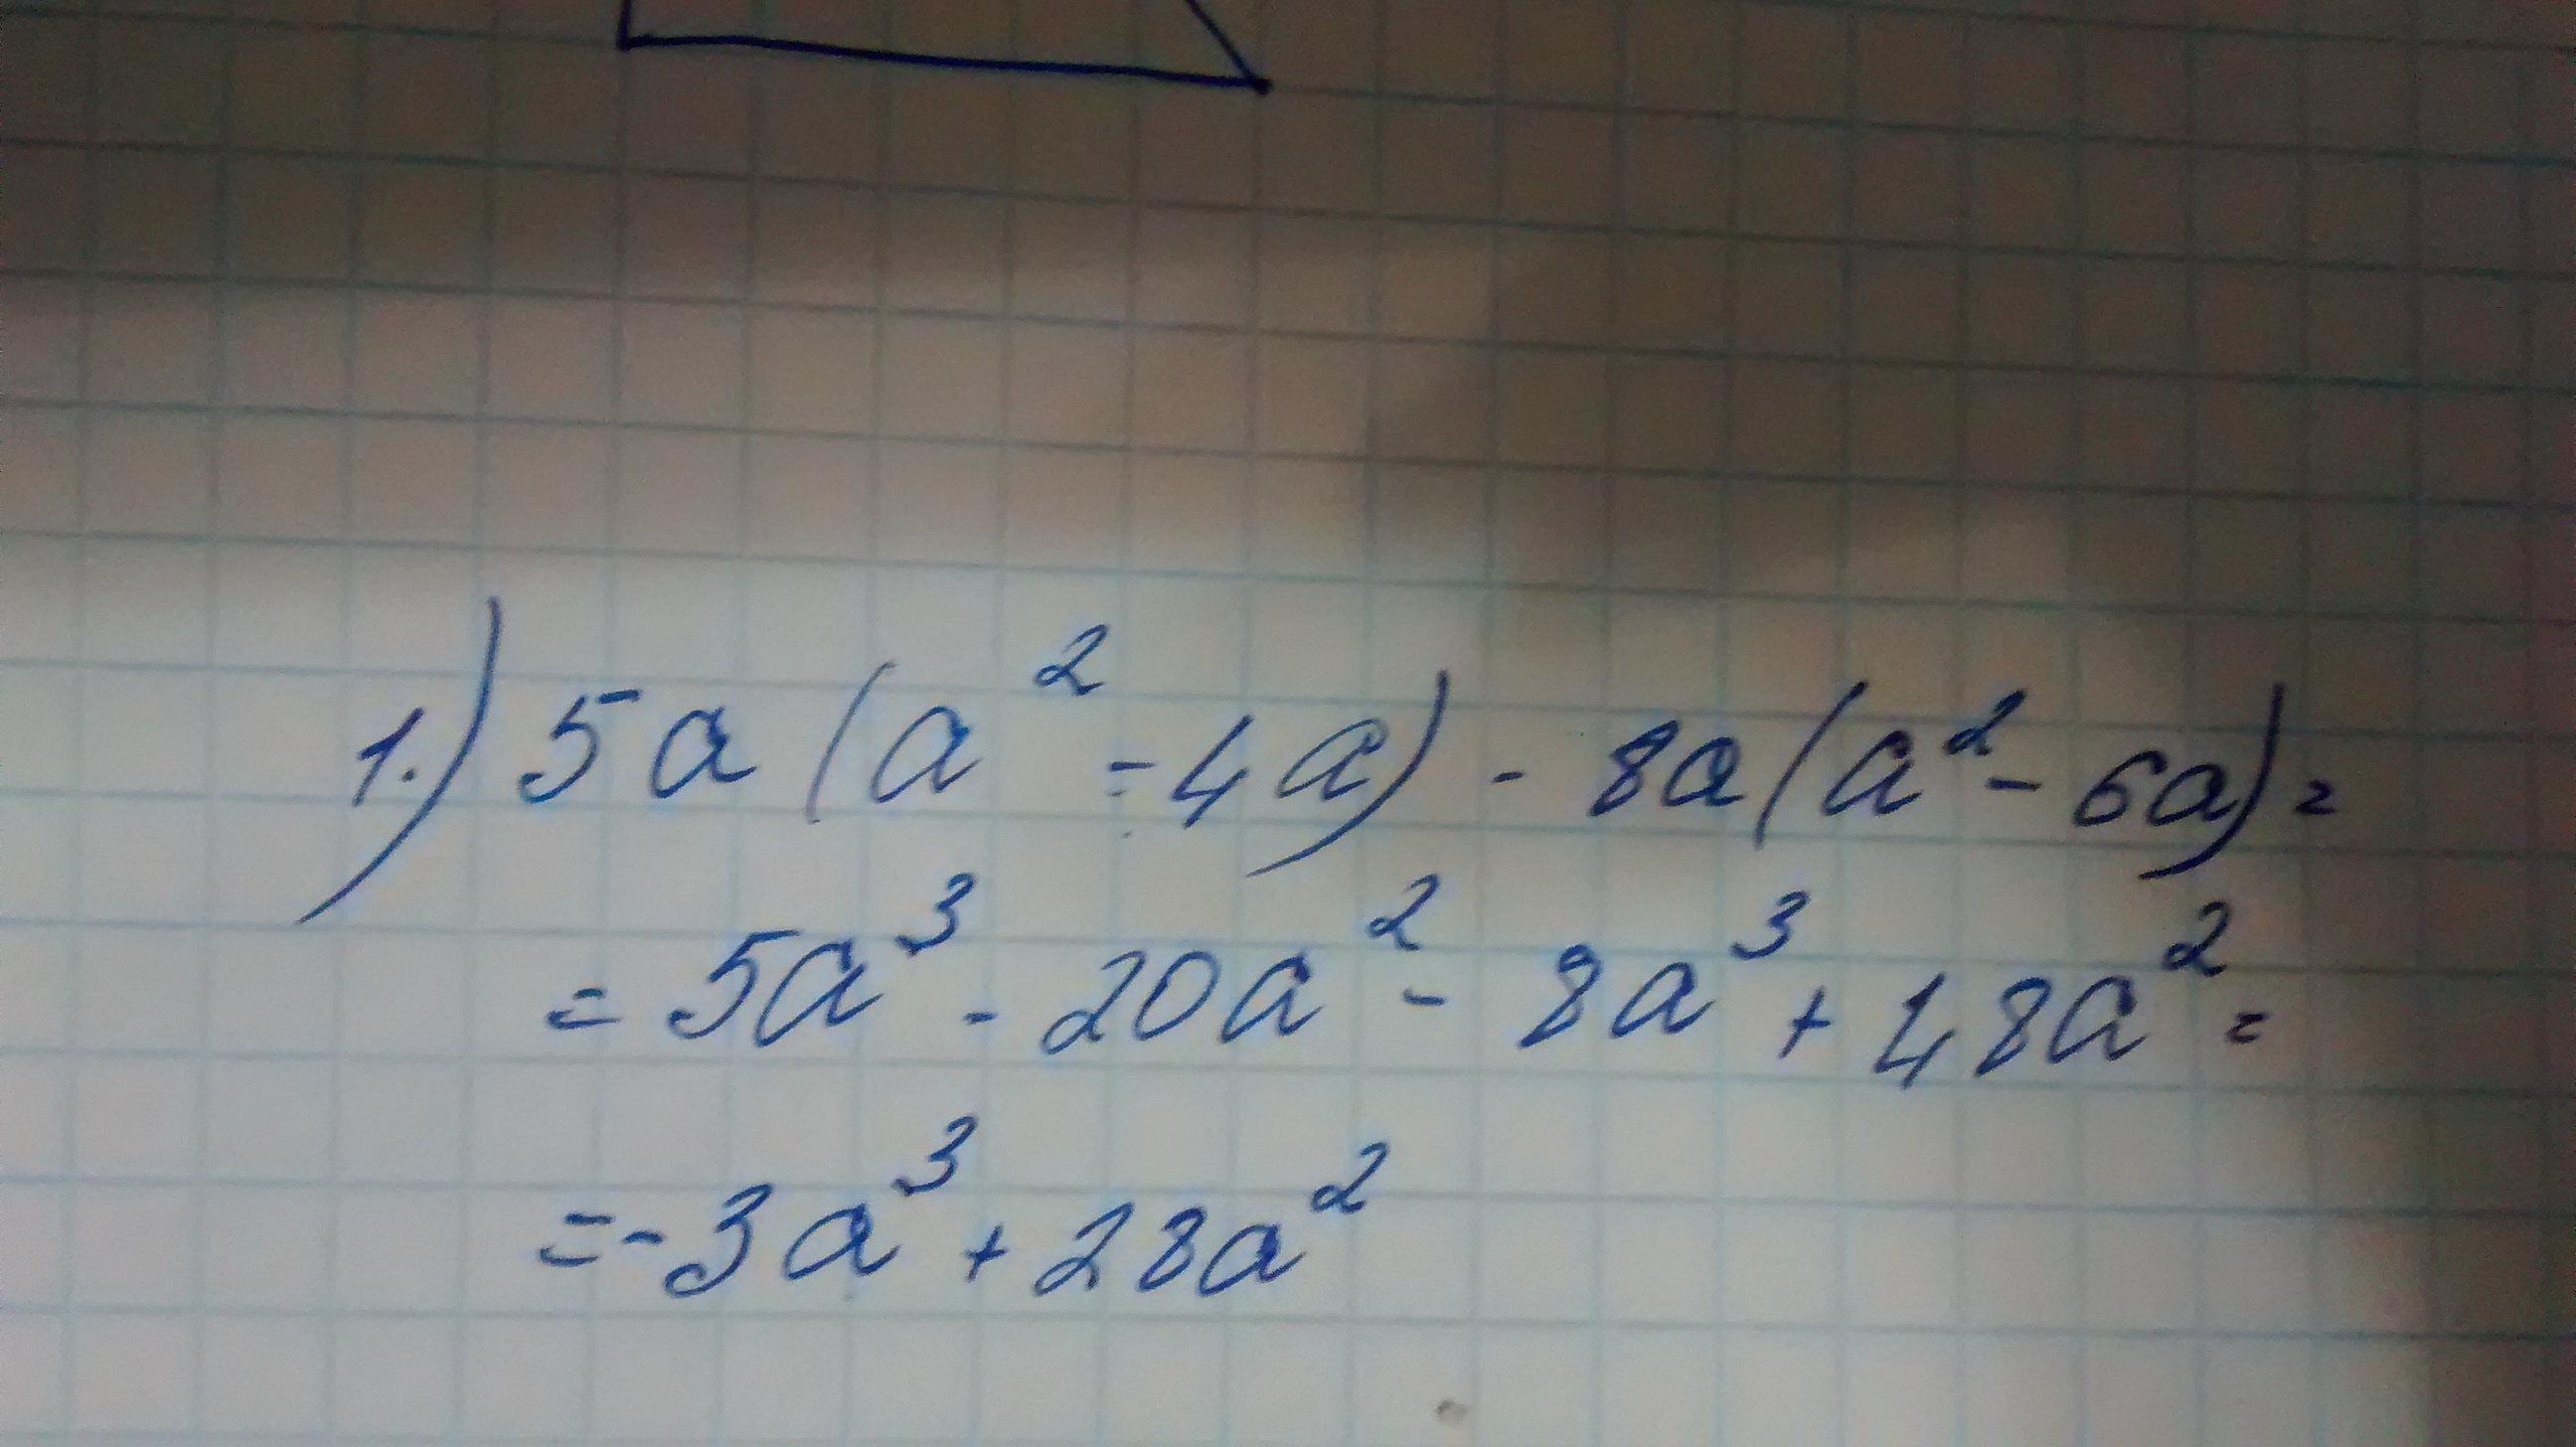 1.) 5a(a² - 4a) - 8a(a² - 6a) =
= 5a³ - 20a² - 8a³ + 48a² =
= -3a³ + 28a²